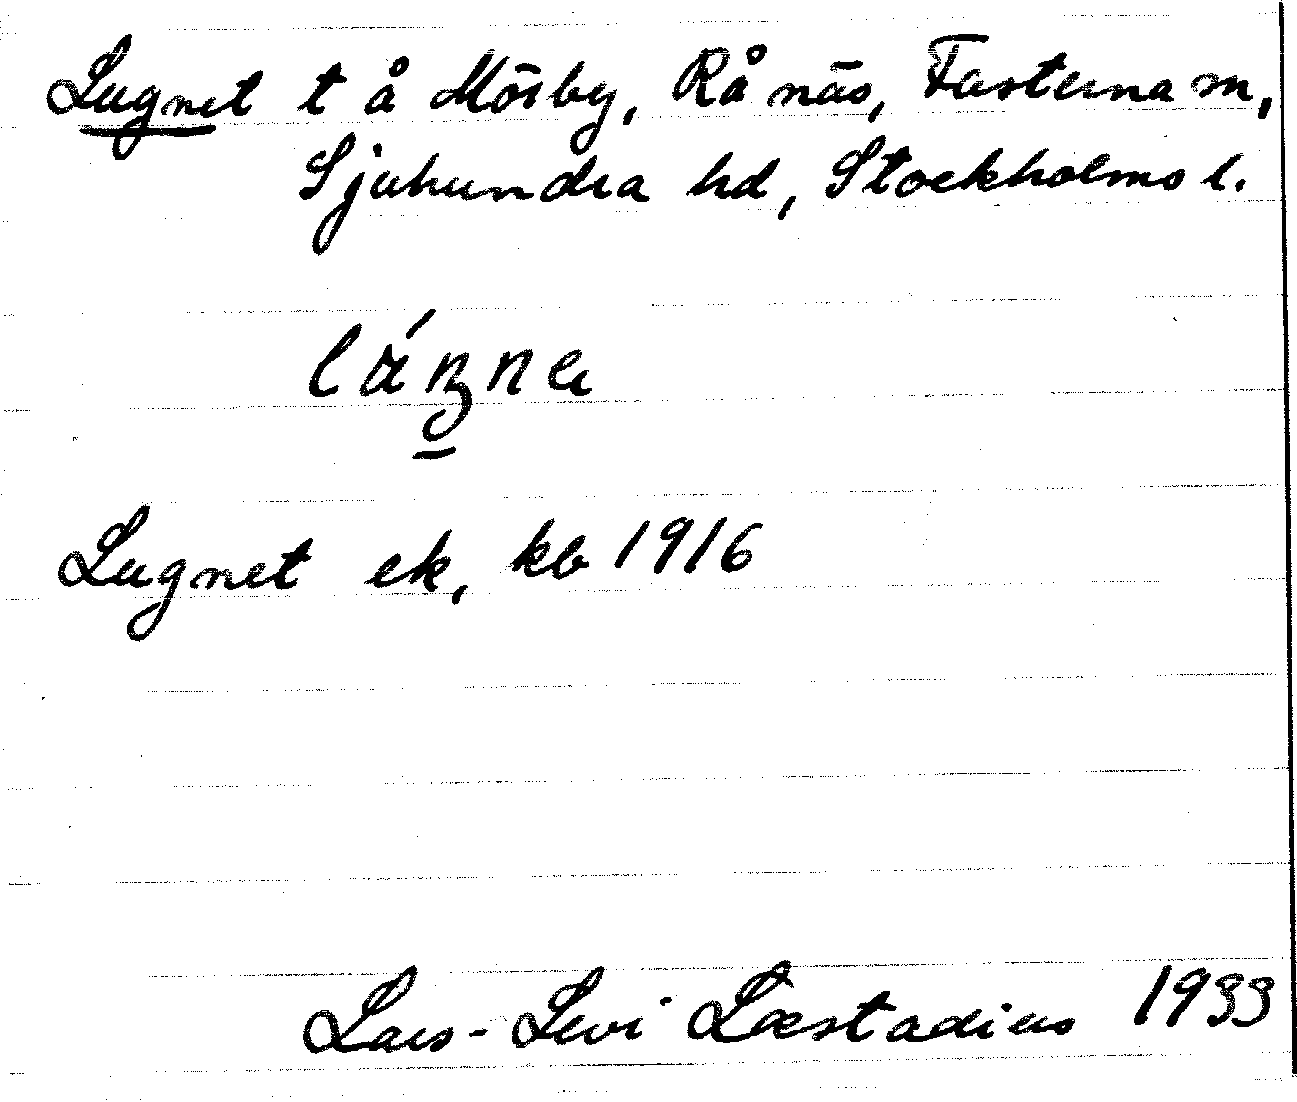 Lugnet t å Mörby, Rånäs, Fasterna sn,
Sjuhundra hd, Stockholms l.
Lugnet ek, kb 1916
Lars-Levi Læstadius 1933